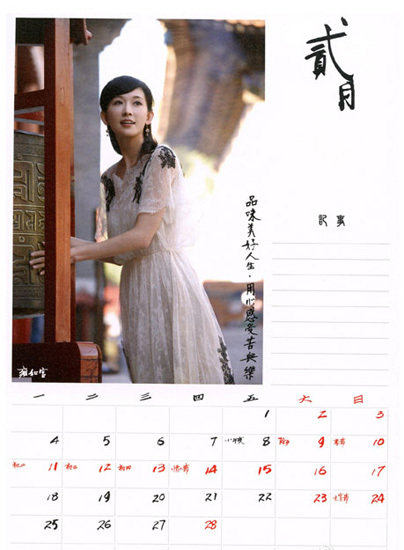 貳月
品味美好人生，用心感受苦與樂
記事
雍和宮
一 二 三 四 五 六 日
1 2 3
4 5 6 7 8 除夕 9 春節 10
初二 11 初三 12 初四 13 情人節 14 15 16 17
18 19 20 21 22 23 元宵節 24
25 26 27 28